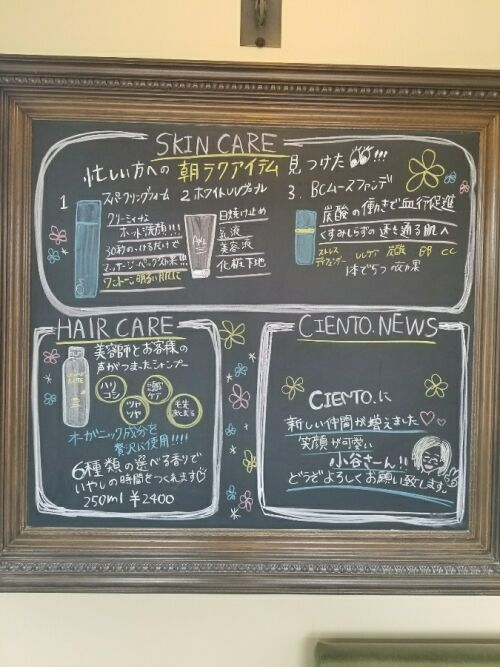 SKIN CARE
忙しい方への 朝ラクアイテム 見つけた!!!
1 スパークリングフォーム
クリーミィな
ホット洗顔!!!
30秒のっけるだけで
マッサージ・パック効果!!!
ワントーン明るい肌に
2 ホワイト
日焼け止め
乳液
美容液
化粧下地
3. BCムースファンデ
炭酸の働きで血行促進
くすみしらずの 透き通る肌へ
ストレス
ディフェンサー
炭酸
BB CC
1本で5つの効果
HAIR CARE
美容師とお客様の
声がつまったシャンプー
ハリ
コシ
ツヤ
ツヤ
頭皮
ケア
オーガニック成分を
贅沢に使用!!!!
6種類の選べる香りで
いやしの時間をつくれます
250ml ¥2400
CIENTO.NEWS
CIENTO.に
新しい仲間が増えました♡♡
笑顔が可愛い
小谷さーん!!
どうぞよろしくお願い致します。